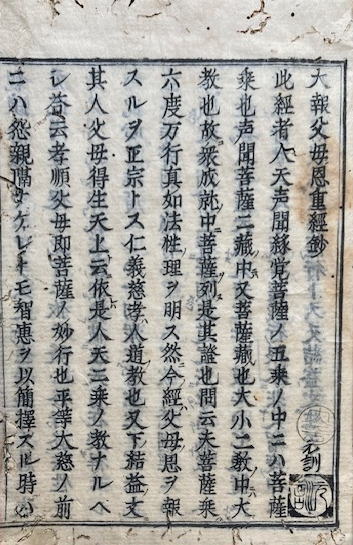 大報父母恩重經鈔
此經者人天声聞緣覚菩薩ノ五乗ノ中ニハ菩薩
乗也声聞菩薩二藏中又菩薩藏也大小二教中大
教也故衆成就中菩薩列是其證也問云夫菩薩乗
六度万行真如法性理ヲ明ス然今經父母恩ヲ報
スルヲ正宗トス仁義慈孝人道教也又下結益文
其人父母得生天上云依是人天二乗ノ教ナルヘ
シ答云孝順父母即菩薩ノ妙行也平等大慈ノ前
ニハ怨親隔ナケレトモ智恵ヲ以簡擇スル時ハ